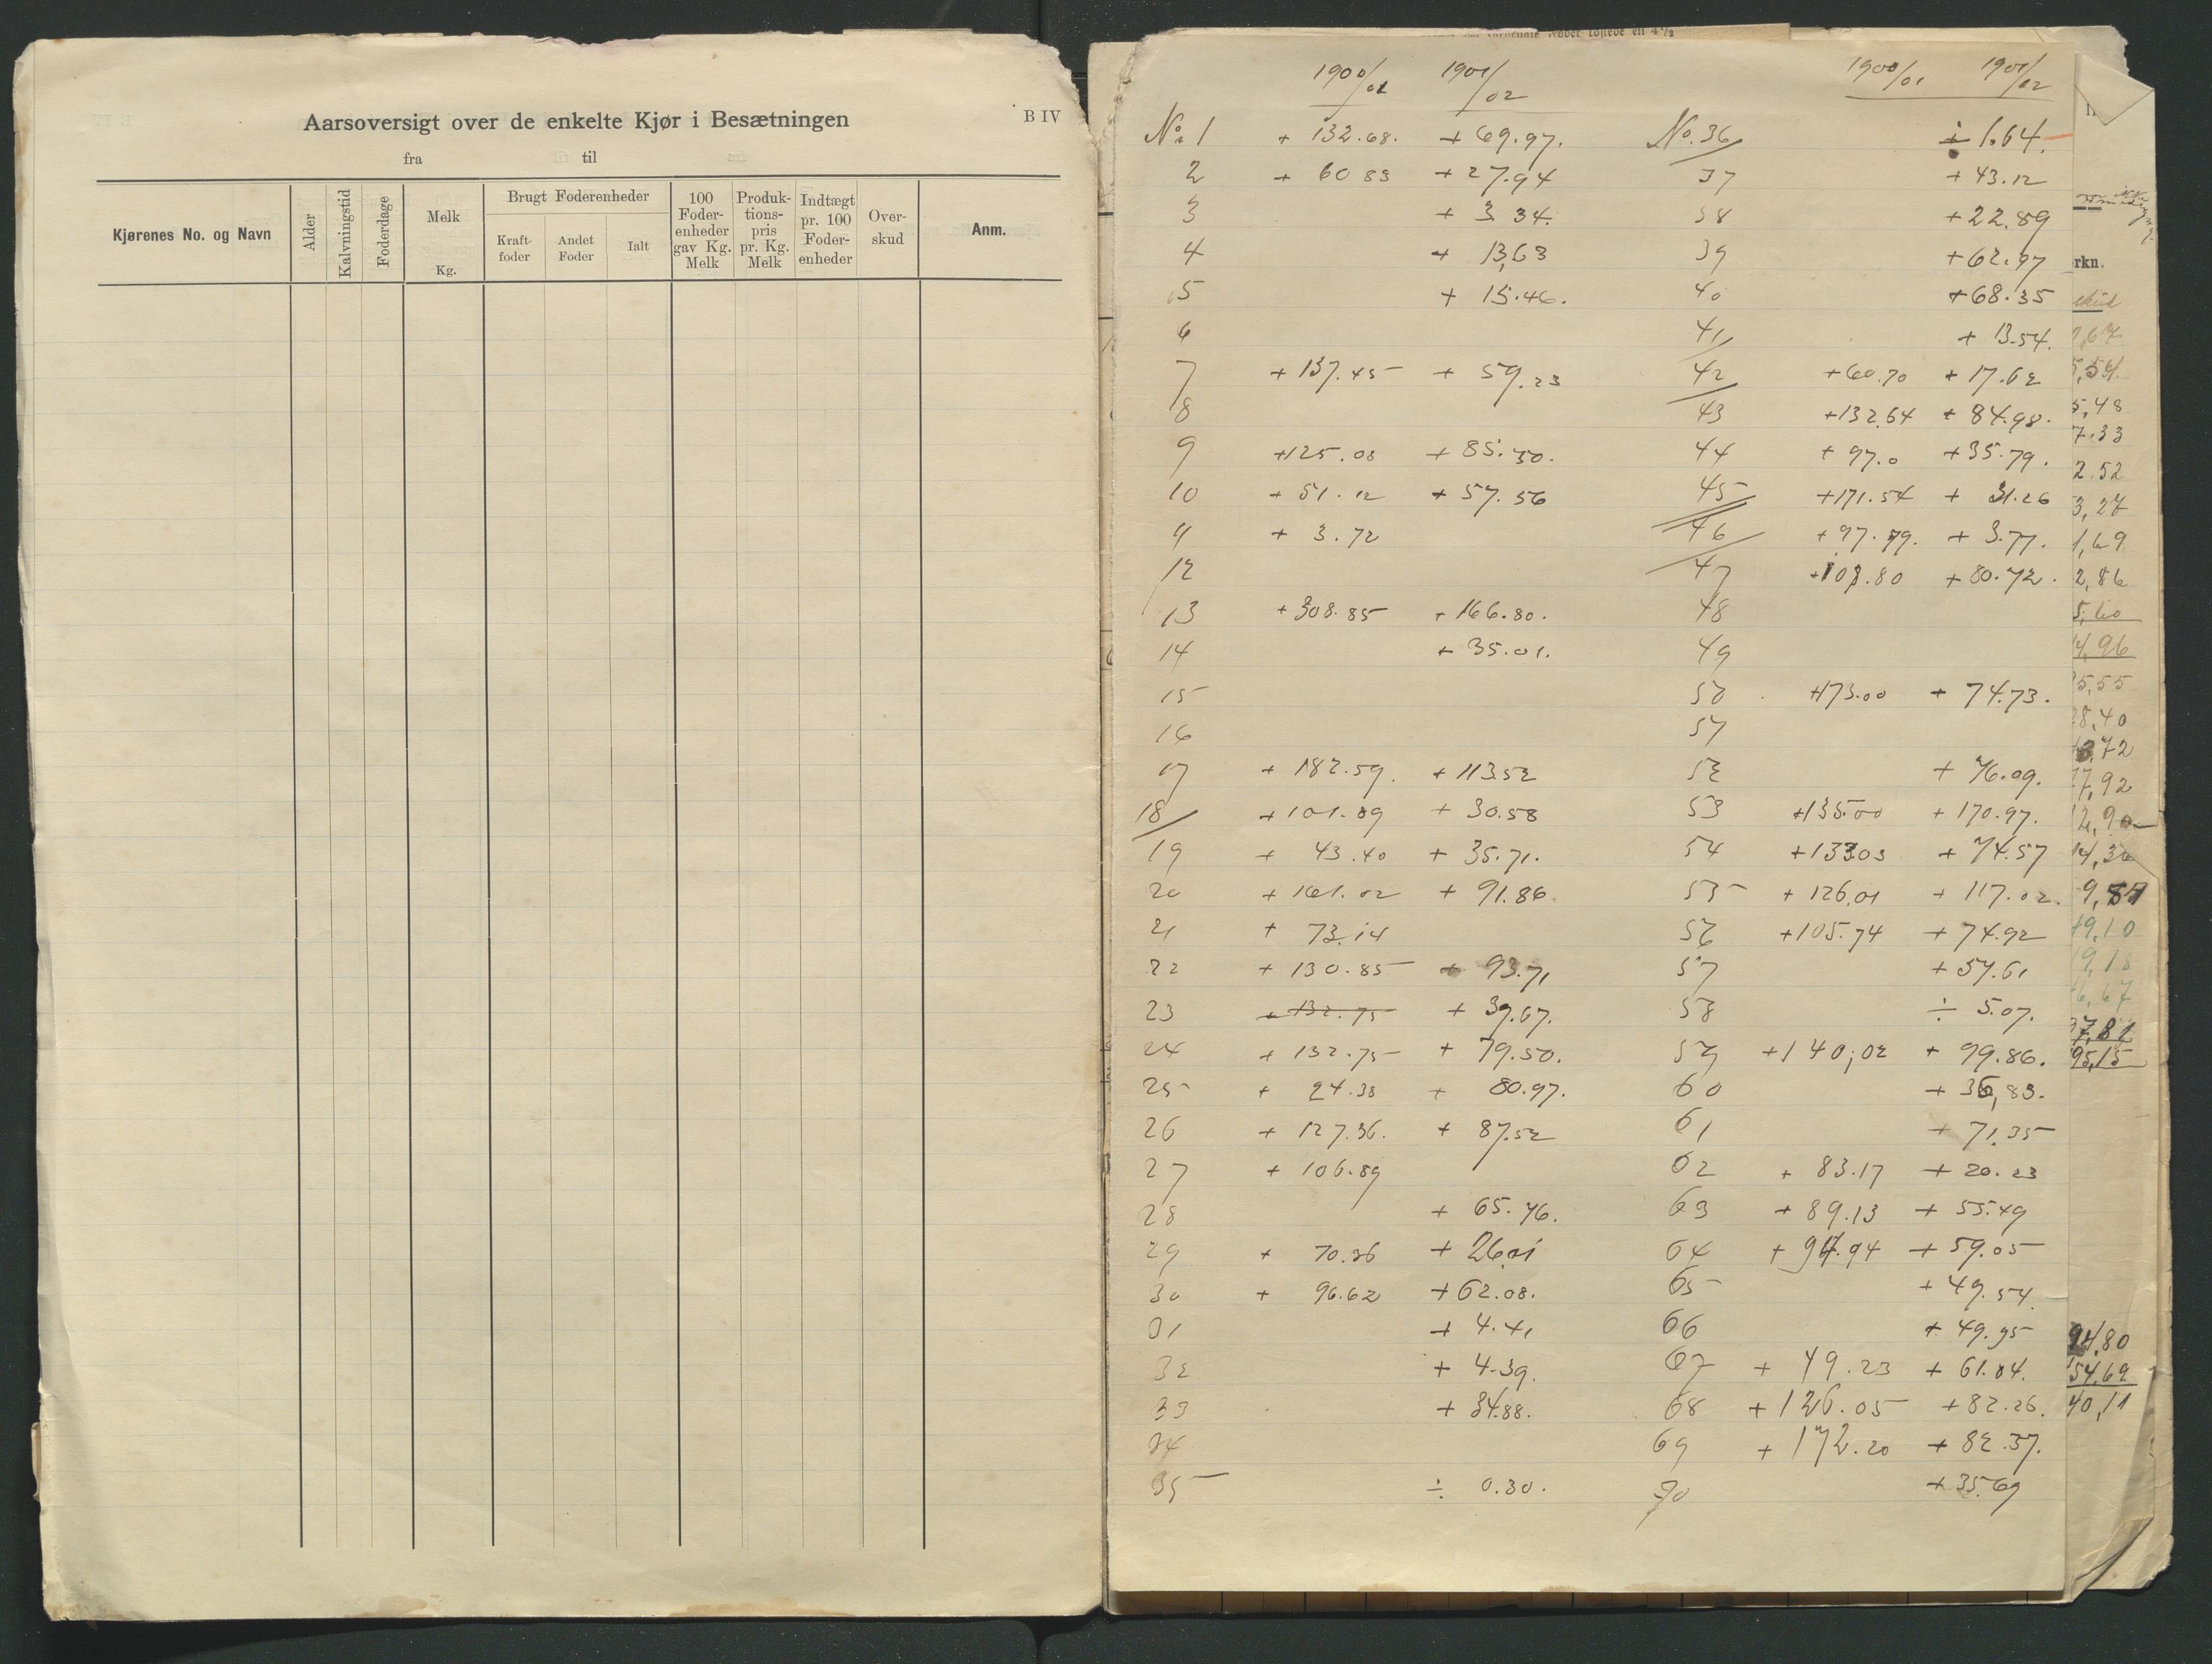 Aarsoversigt over de enkelte Kjør i Besætningen
B IV
fra til
Kjørenes No. og Navn
Alder
Kalvningstid
Foderdage
Melk
Kg.
Brugt Foderenheder
Kraft-
foder
Andet
Foder
Ialt
100
Foder-
enheder
gav Kg.
Melk
Produk-
tions-
pris
pr. Kg.
Melk
Indtægt
pr. 100
Foder-
enheder
Over-
skud
Anm.
1900/01 1901/02
No. 1 + 132.68. + 69.97.
2 + 60 83 + 27.94
3 + 3 34.
4 + 13,63
5 + 15.46.
6
7 + 137.45 + 59.23
8
9 +125.08 + 85.30.
10 + 51.12 + 57.56
11 + 3.72
12
13 + 308.85 + 166.80.
14 + 35.01.
15
16
17 + 182.59. + 113.52
18 + 101.89 + 30.58
19 + 43.40 + 35.71.
20 + 161.02 + 91.86.
21 + 73.14
22 + 130.85 + 93.71
23 + 132.75 + 39.67.
24 + 132.75 + 79.50.
25 + 24.38 + 80.97.
26 + 127.36. + 87.52
27 + 106.89
28 + 65.76.
29 + 70.36 + 26.01
30 + 96.62 + 62.08.
31 + 4.41
32 + 4.39.
33 + 34.88.
34
35 ÷ 0.30.
1900/01 1901/02
No. 36 ÷ 1.64.
37 + 43.12
38 + 22.89
39 + 62.97
40 + 68.35
41 + 13.54.
42 + 60.70 + 17.62
43 + 132.64 + 84.98.
44 + 97.0 + 35.79.
45 + 171.54 + 31.26
46 + 97.79. + 3.77.
47 + 108.80 + 80.72.
48
49
50 + 173.00 + 74.73.
51
52 + 76.09.
53 + 135.00 + 170.97.
54 + 133.03 + 74.57
55 + 126.01 + 117.02.
56 + 105.74 + 74.92
57 + 57.61
58 ÷ 5.07.
59 + 140,02 + 99.86.
60 + 36,83.
61 + 71.35
62 + 83.17 + 20.23
63 + 89.13 + 55.49
64 + 94.94 + 59.05
65 + 49.54.
66 + 49.95
67 + 79.23 + 61.84.
68 + 126.05 + 82.26.
69 + 172.20 + 82.37.
70 + 35.69
rkn.
5,48
7.33
2.52
3,27
1,69
2,86
4,96
5,55
8,40
3,72
7,92
2,90
9,10
9,18
6,67
7,81
95,15
94,80
54,69
40,11